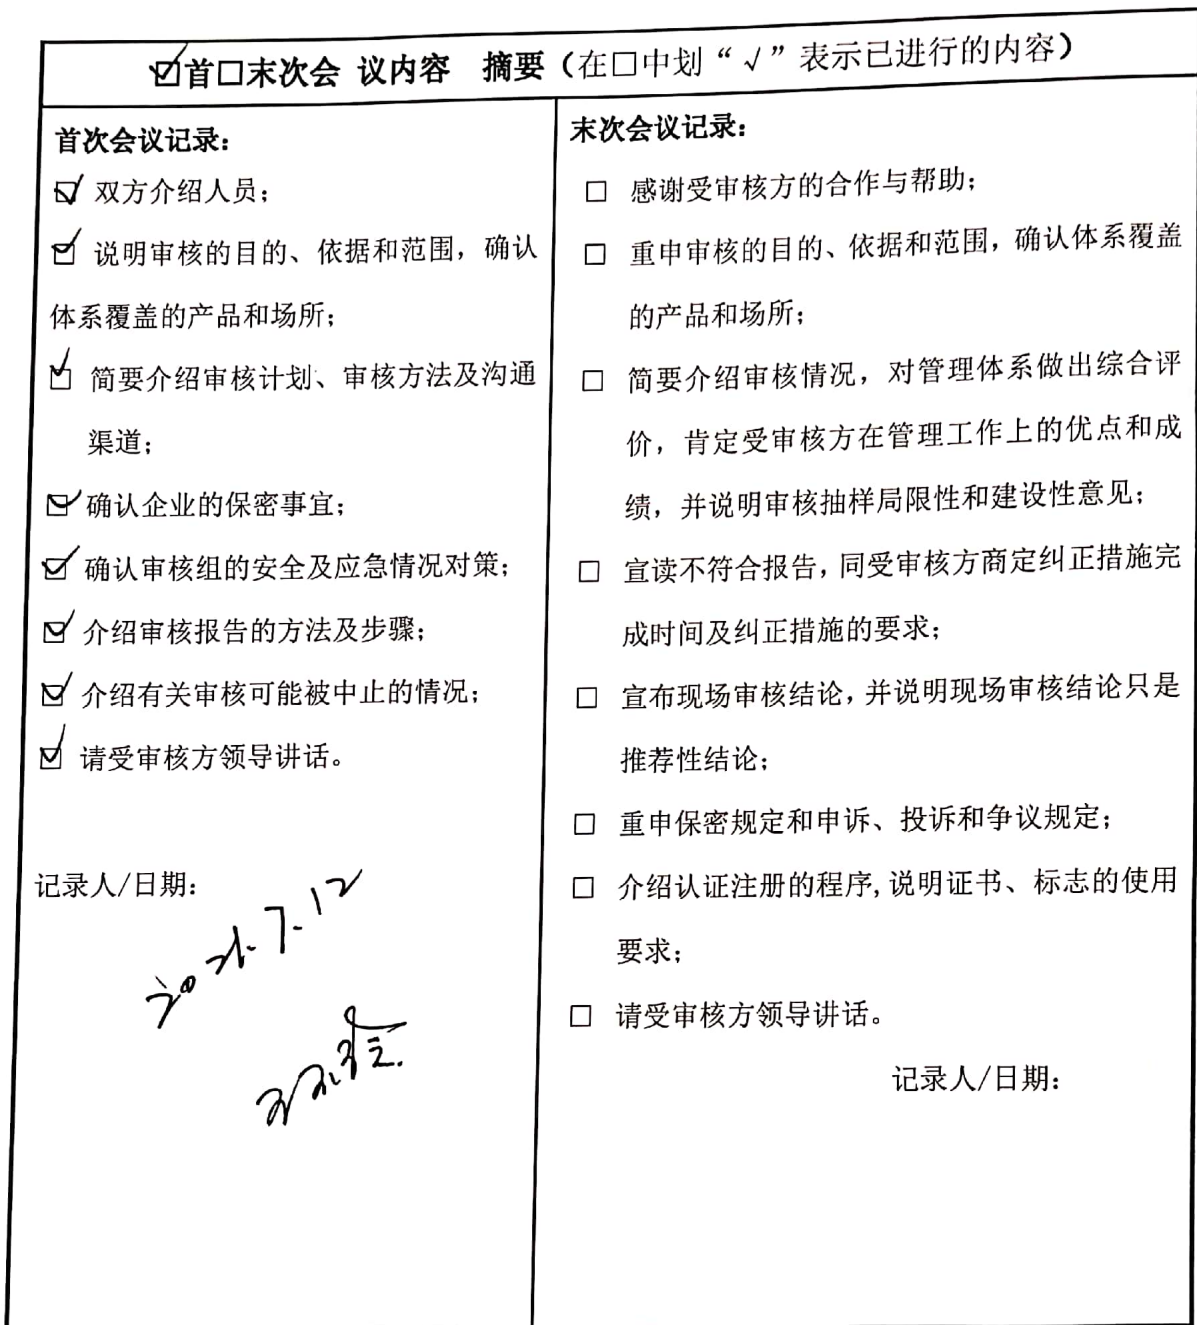 ☑首□末次会 议内容 摘要（在□中划“√”表示已进行的内容）
首次会议记录：
☑ 双方介绍人员；
☑ 说明审核的目的、依据和范围，确认
体系覆盖的产品和场所；
☑ 简要介绍审核计划、审核方法及沟通
渠道；
☑ 确认企业的保密事宜；
☑ 确认审核组的安全及应急情况对策；
☑ 介绍审核报告的方法及步骤；
☑ 介绍有关审核可能被中止的情况；
☑ 请受审核方领导讲话。
记录人/日期：
7.12
末次会议记录：
□ 感谢受审核方的合作与帮助；
□ 重申审核的目的、依据和范围，确认体系覆盖
的产品和场所；
□ 简要介绍审核情况，对管理体系做出综合评
价，肯定受审核方在管理工作上的优点和成
绩，并说明审核抽样局限性和建设性意见；
□ 宣读不符合报告，同受审核方商定纠正措施完
成时间及纠正措施的要求；
□ 宣布现场审核结论，并说明现场审核结论只是
推荐性结论；
□ 重申保密规定和申诉、投诉和争议规定；
□ 介绍认证注册的程序，说明证书、标志的使用
要求；
□ 请受审核方领导讲话。
记录人/日期：